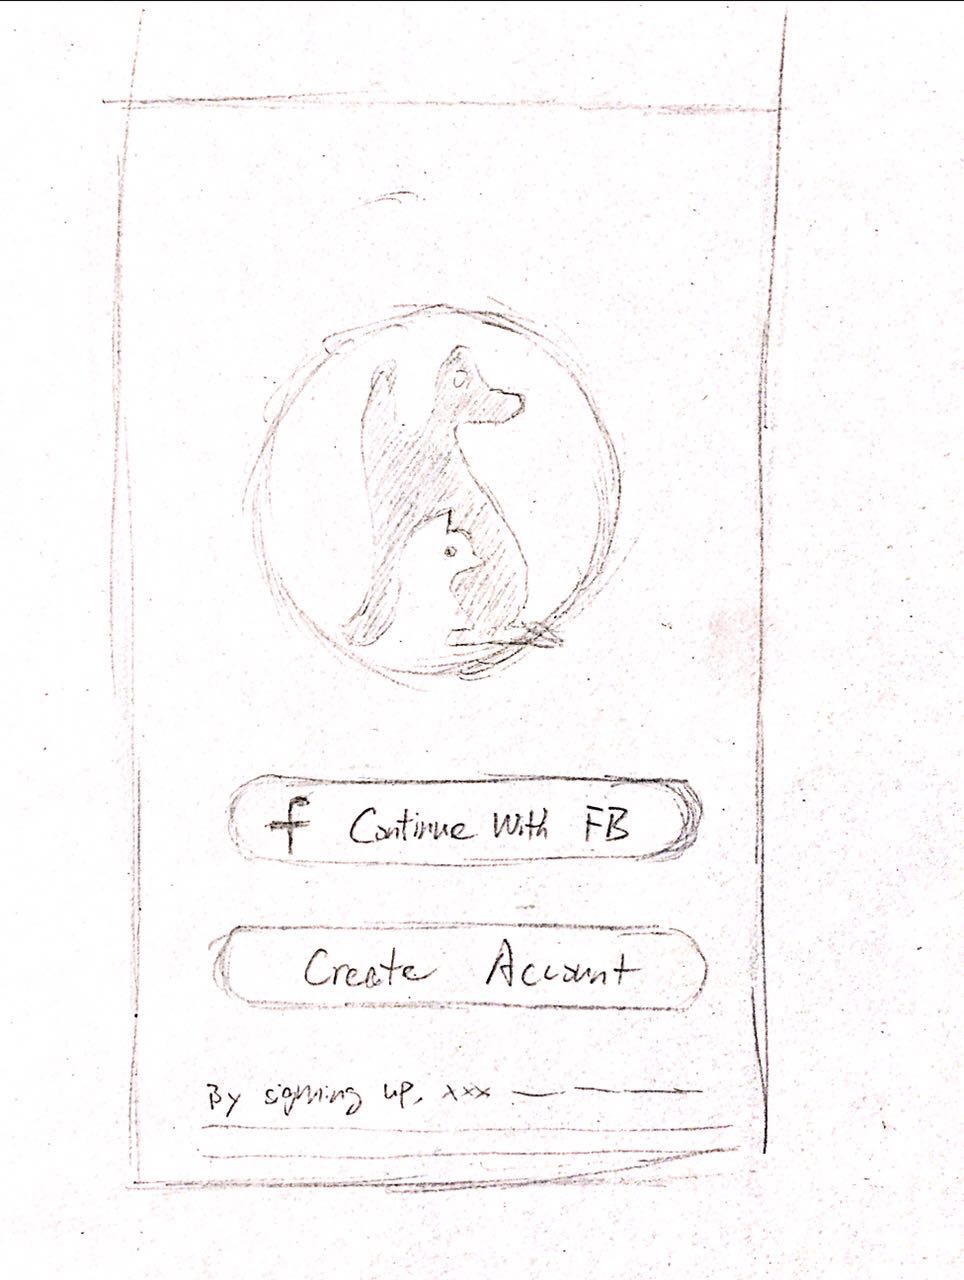 f Continue With FB
Create Account
By signing up, xxx